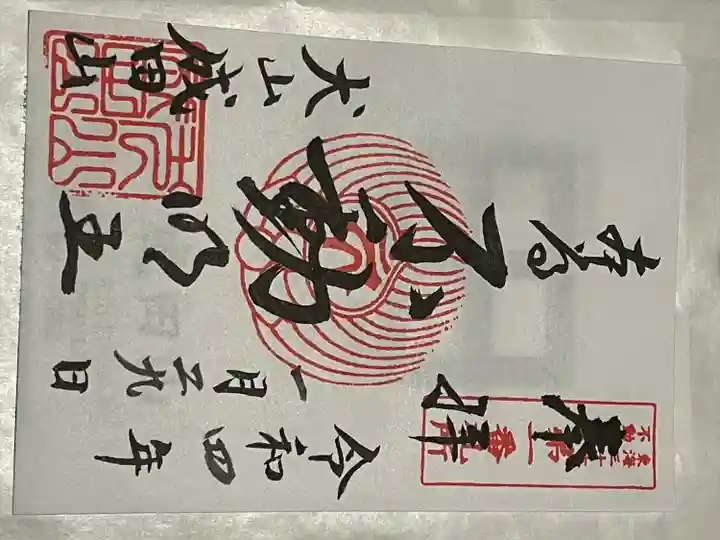 奉拝
東海三十六
不動尊
第一番札所
不動明王
犬山成田山
令和四年
一月二九日